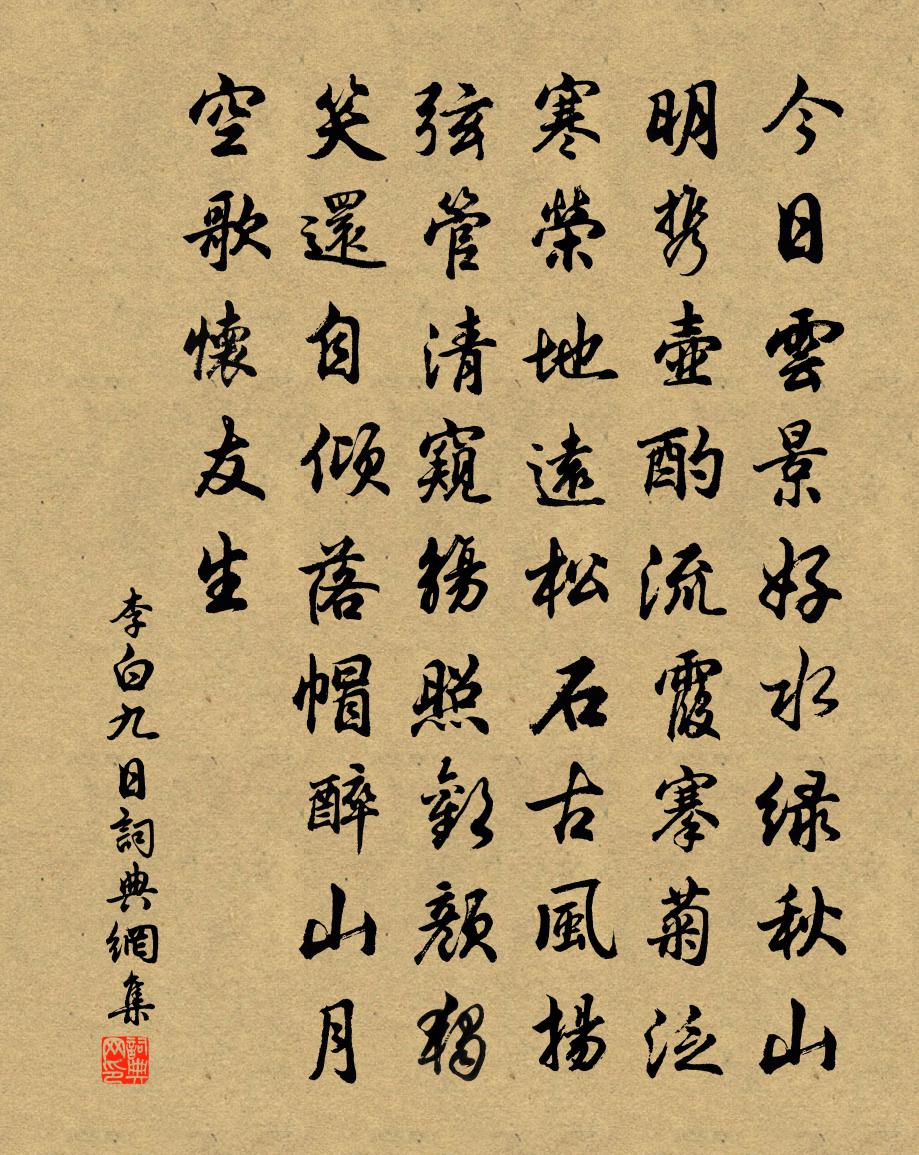 今日雲景好水綠秋山
明携壺酌流霞搴菊泛
寒榮地遠松石古風揚
弦管清窺觴照歡顏獨
笑還自傾落帽醉山月
空歌懷友生
李白九日詞典網集
詞典网印